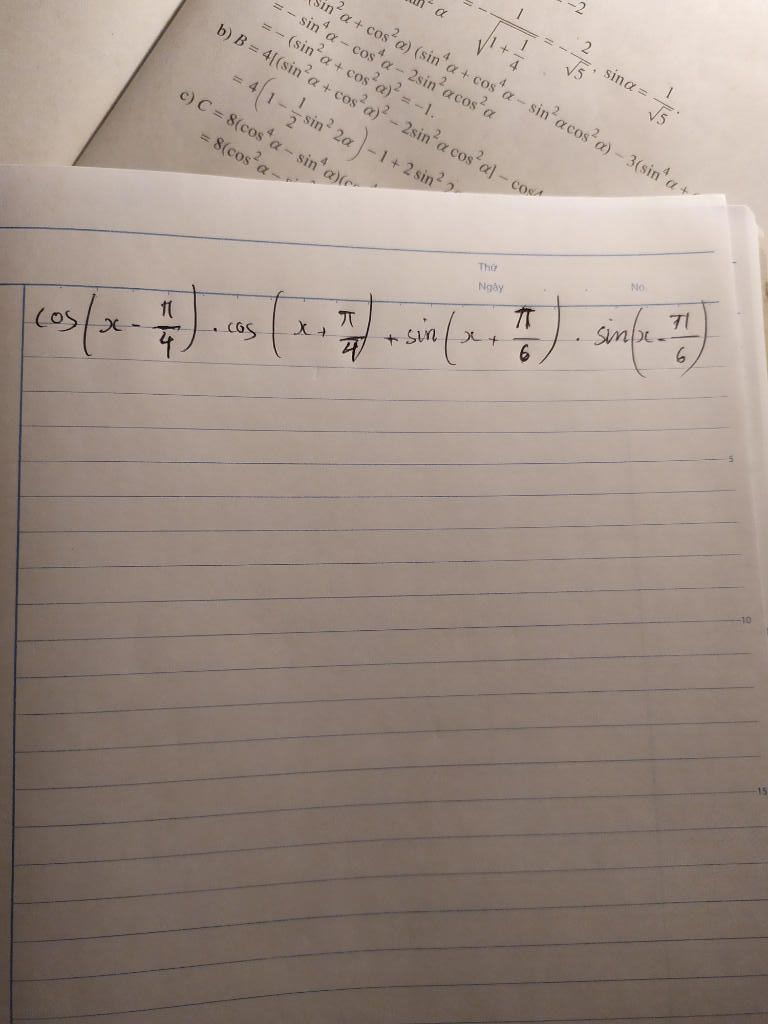 1
= - ――― = - 2/√5, sinα = 1/√5.
√(1 + 1/4)
(sin²α + cos²α) (sin⁴α + cos⁴α – sin²αcos²α) – 3(sin⁴α +
= – sin⁴α – cos⁴α – 2sin²αcos²α
= – (sin²α + cos²α)² = –1.
b) B = 4[(sin²α + cos²α)² – 2sin²αcos²α] –
= 4(1 – 1/2 sin²2α) – 1 + 2sin²
c) C = 8(cos⁴α – sin⁴α)
= 8(cos²α –
Thứ
Ngày No.
cos(x - π/4) . cos(x + π/4) + sin(x + π/6) . sin(x - π/6)
5
10
15